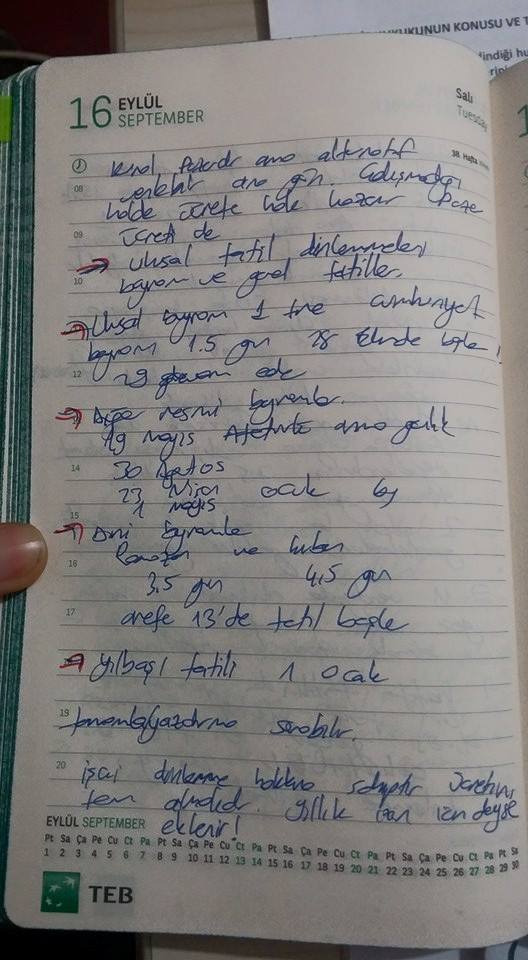 HUKUKUNUN KONUSU VE T
dindiği hu
16 EYLÜL
SEPTEMBER
Salı
Tuesday
38. Hafta
kural Pazardır ama alternatif
08
ama gün. Çalışmadan
halde ücrete hak kazanır
09
ücreti de
→ Ulusal tatil dinlenmeleri
10
bayram ve genel tatiller.
→ Ulusal bayram 1 tane cumhuriyet
bayram 1.5 gün 28 Ekimde başla
12
29 devam ede
→ Diğer resmi bayramlar.
19 Mayıs Atatürk anma gençlik
14
30 Ağustos
23 Nisan ocak
15
1 mayıs
→ Dini bayramla
Ramazan ve kurban
16
3,5 gün 4,5 gün
17
arefe 13'de tatil başla
→ Yılbaşı tatili 1 Ocak
19
sorabilir.
20
işçi dinlenme hakkına sahiptir ücretini
tam almalıdır. Yıllık izindeyse
eklenir!
EYLÜL SEPTEMBER
Pt Sa Ça Pe Cu Ct Pa Pt Sa Ça Pe Cu Ct Pa Pt Sa Ça Pe Cu Ct Pa Pt Sa Ça Pe Cu Ct Pa Pt Sa
1 2 3 4 5 6 7 8 9 10 11 12 13 14 15 16 17 18 19 20 21 22 23 24 25 26 27 28 29 30
TEB